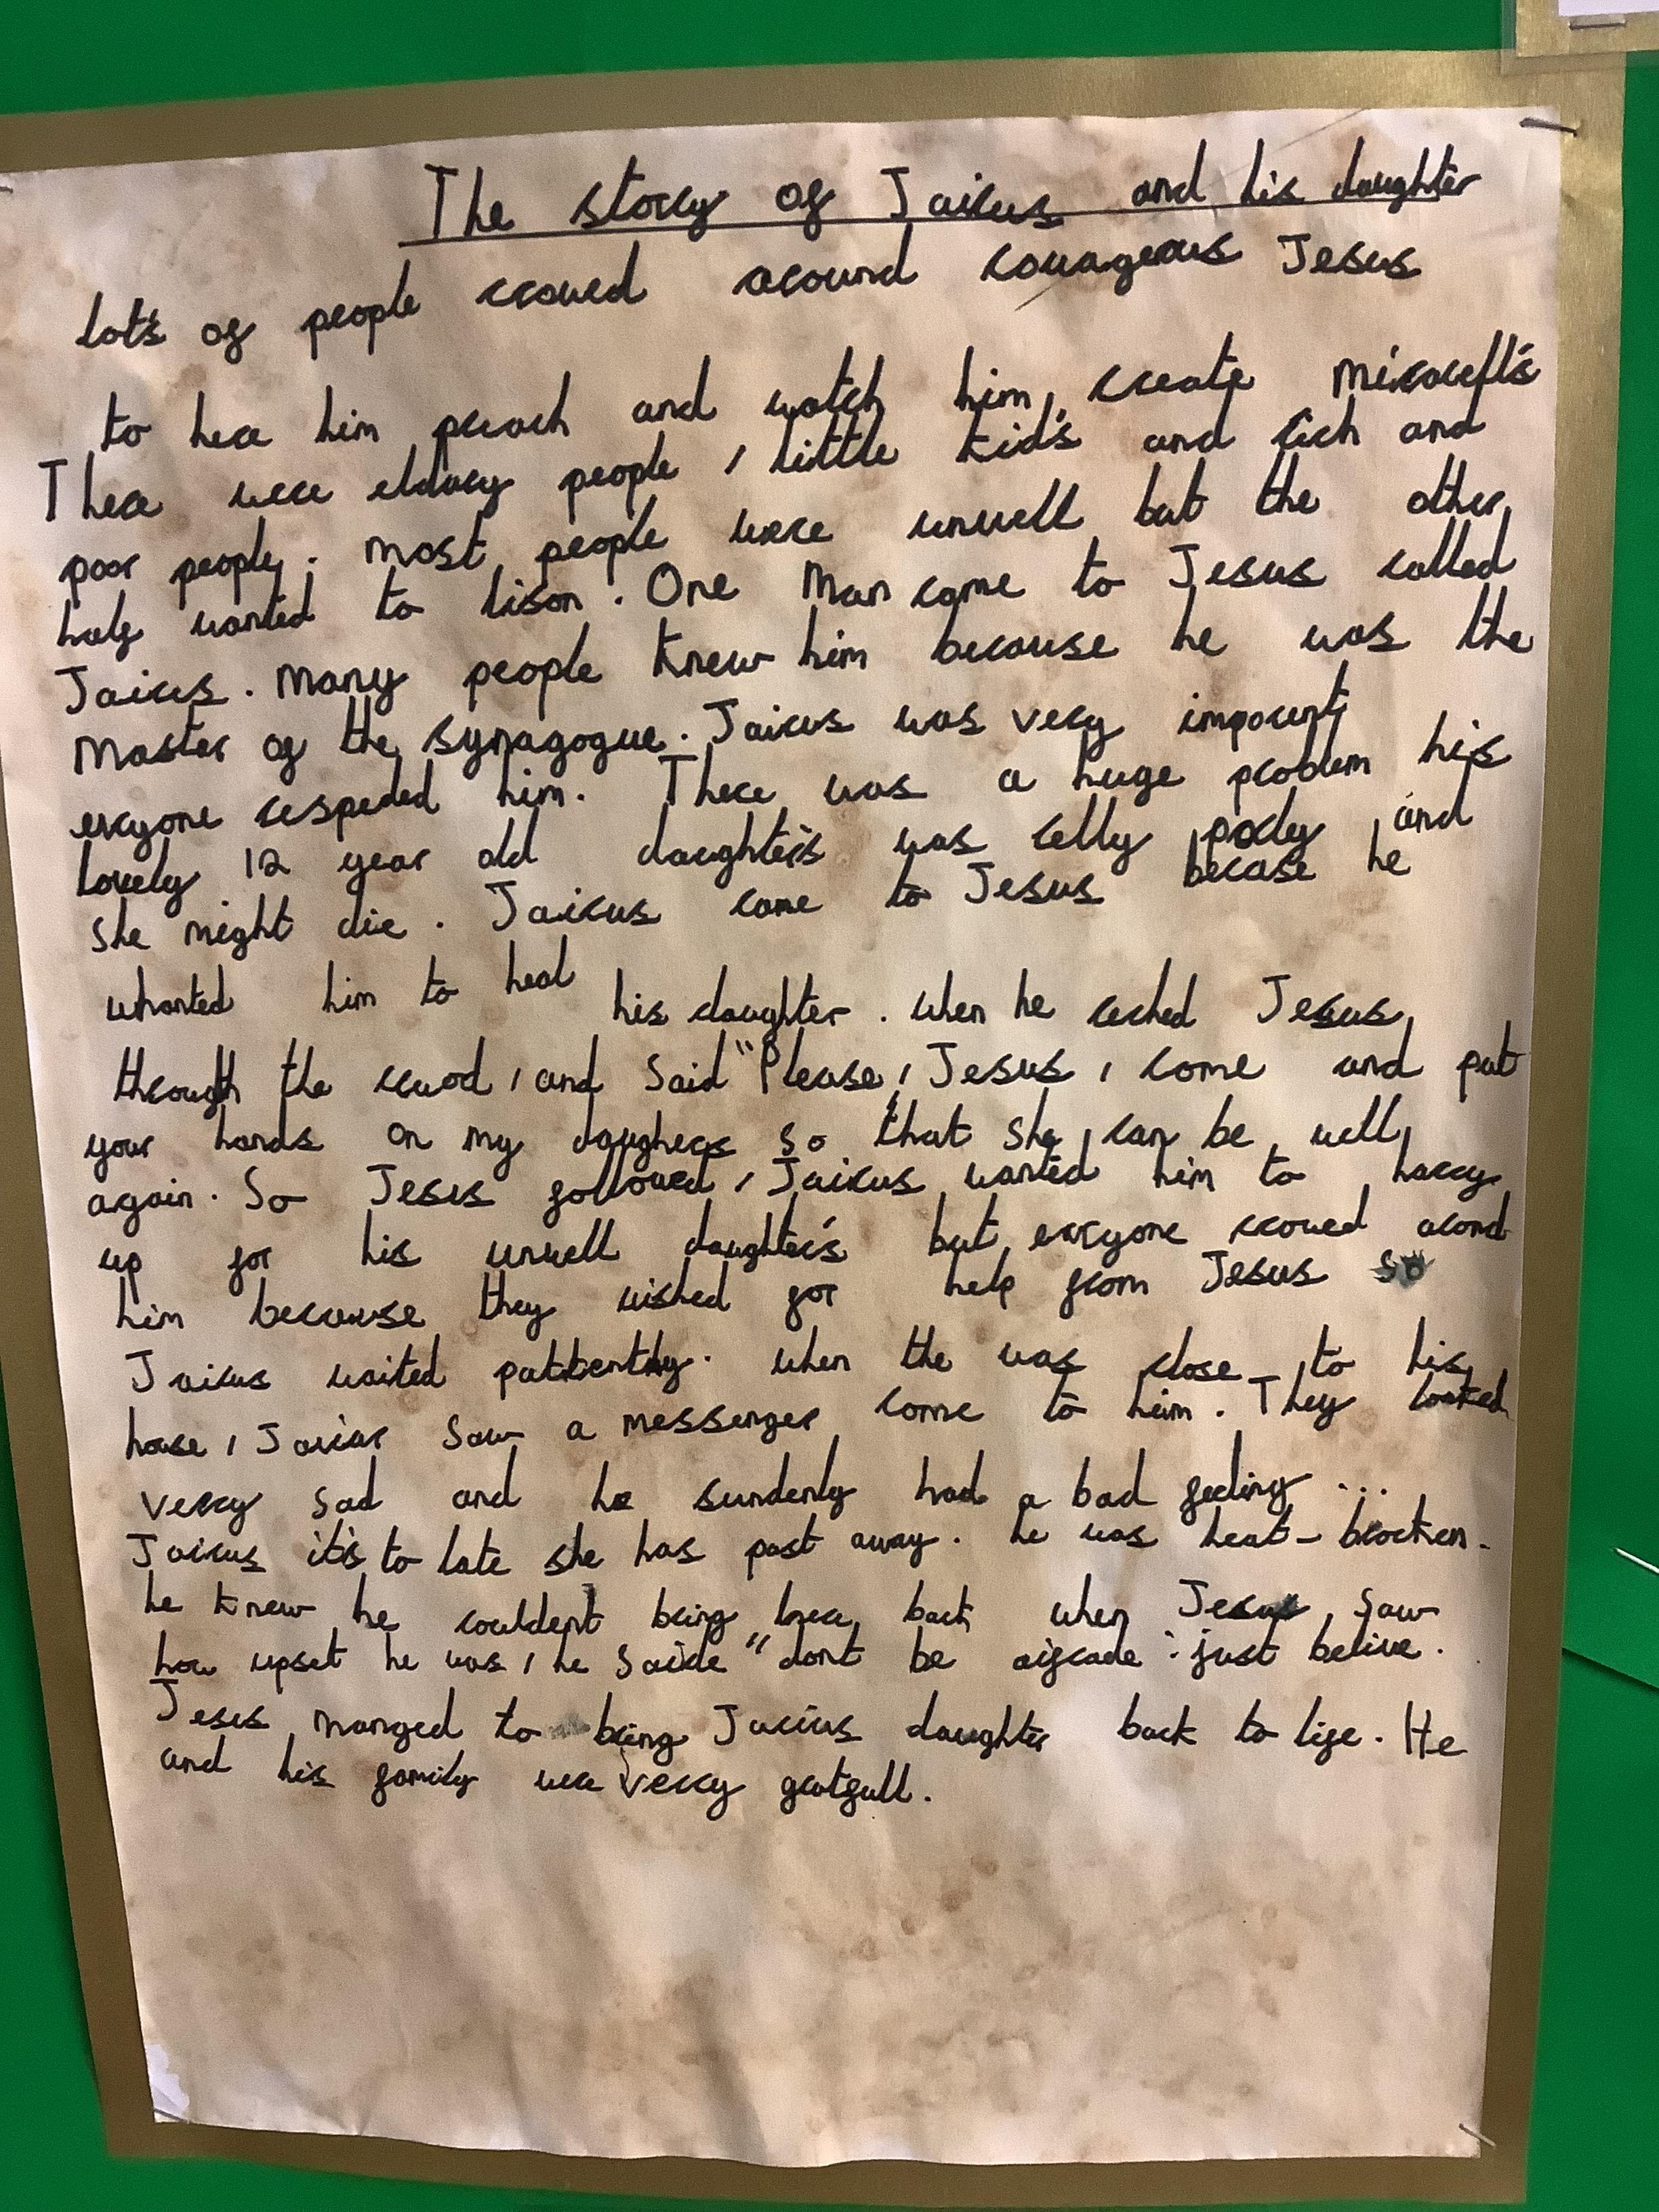 The story of Jairus and his daughter
lot's of people crowed around couragerous Jesus
to here him preach and watch him create
There were eldary people, little kid's and rich and
poor people. most people were unwell but the other
half wanted to lison. One Man came to Jesus called
Jairus. Many people knew him because he was the
Master of the synagogue. Jairus was very
evryone respeded him. There was a huge problem his
lovely 12 year old daughter's was relly and
she might die. Jairus came to Jesus becase he
whanted him to heal his daughter. when he reched Jesus
through the crwod, and said "Please, Jesus, come and put
your hands on my so that she can be well
again. So Jesus followed, Jairus wanted him to harry
up for his unwell daughter's but evryone crowed arond
him because they wished for help from Jesus so
Jairus waited when the was close to his
house, saw a messenger come to him. They looked
verry sad and he sundenly had a bad feeling ...
Jairus it's to late she has past away. he was heat-brocken.
he knew he couldent bring back when Jesus saw
how upset he was, he saide "dont be aifrade: just belive.
Jesus manged to bring daughter back to life. He
and his family were verry gratfull.